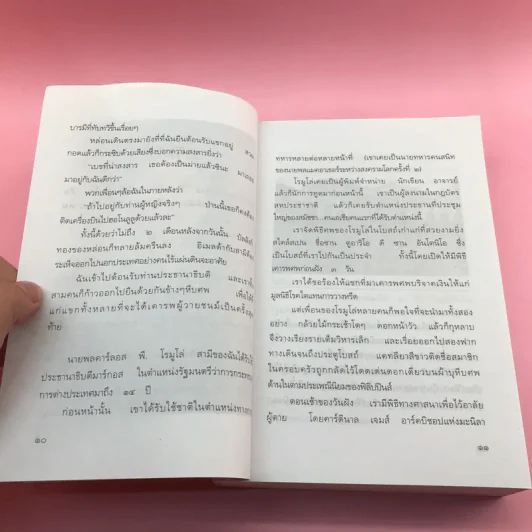 บารมีที่ทับทวีขึ้นเรื่อยๆ
หล่อนเดินตรงมายังที่ที่ฉันยืนต้อนรับแขกอยู่
กอดแล้วก็กระซิบด้วยเสียงซึ่งบอกความสงสารยิ่งว่า
"เบธที่น่าสงสาร เธอต้องเป็นม่ายแล้วซินะ
มาอยู่กับฉันดีกว่า"
พวกเพื่อนๆล้อฉันในภายหลังว่า
"ถ้าไปอยู่กับท่านผู้หญิงจริงๆ ป่านนี้เธอก็คง
ติดเครื่องบินไปฮอโนลูลูด้วยแล้วละ"
ทั้งนี้ด้วยว่าไม่ถึง ๒ เดือนหลังจากวันนั้น
ทองของหล่อนก็ทลายล้มครืนลง อิเมลด้ากับสามี
ระเห็จออกไปนอกประเทศอย่างคนไร้แผ่นดินจะอาศัย
ฉันเข้าไปต้อนรับท่านประธานาธิบดี และเรา
สามคนก็ก้าวออกไปยืนด้วยกันข้างๆหีบศพ เพื่อ
แก่แขกทั้งหลายที่จะได้เคารพผู้วายชนม์เป็นครั้ง
ท้าย
นายพลคาร์ลอส พี. โรมูโล สามีของฉันได้
ประธานาธิบดีมาร์กอส ในตำแหน่งรัฐมนตรีว่าการกระทรวง
การต่างประเทศมาถึง ๑๕ ปี
ก่อนหน้านั้น เขาได้รับใช้ชาติในตำแหน่งทาง
๑๐
ทหารหลายต่อหลายหน้าที่ (เขาเคยเป็นนายทหารคนสนิท
ของนายพลแมคอาเธอร์ระหว่างสงครามโลกครั้งที่ ๒)
โรมูโลเคยเป็นผู้พิมพ์จำหน่าย นักเขียน อาจารย์
แล้วก็นักการทูตมาก่อนหน้านี้ เขาเป็นผู้ลงนามในกฎบัตร
สหประชาชาติ แล้วก็เคยรับตำแหน่งประธานที่ประชุม
ใหญ่ของสมัชชา..คนเอเชียคนแรกที่ได้รับตำแหน่งนี้
เราจัดพิธีศพของโรมูโลในโบสถ์เก่าแก่ที่สวยงามยิ่ง
สไตล์สเปน ชื่อซาน ซึ่ง
เป็นโบสถ์ที่เราไปกันเป็นประจำ ทั้งนี้โดยเปิดให้มีพิธี
เคารพศพก่อนฝัง ๓ วัน
เราได้ขอร้องให้แขกที่มาเคารพศพบริจาคเงินให้แก่
มูลนิธิโรคไตแทนการวางหรีด
แต่เพื่อนของโรมูโลหลายคนก็พอใจที่จะนำมาทั้งสอง
อย่าง กล้วยไม้กระเช้าโตๆ ดอกหน้าวัว แล้วก็กุหลาบ
จึงวางเรียงรายเต็มวิหารเล็ก และเรื่อยออกไปสองฟาก
ทางเดินจนถึงประตูโบสถ์ แคทลียาสีขาวติดชื่อสมาชิก
ในครอบครัวถูกกลัดไว้โดดเด่นดอกเดียวบนฝาบุหีบศพ
ด้านในตามประเพณีนิยมของฟิลิปปินส์
ตอนเช้าของวันฝัง เรามีพิธีทางศาสนาเพื่อไว้อาลัย
ผู้ตาย โดยคาร์ดินาล เจมส์ อาร์คบิชอปแห่งมะนิลา
๑๑